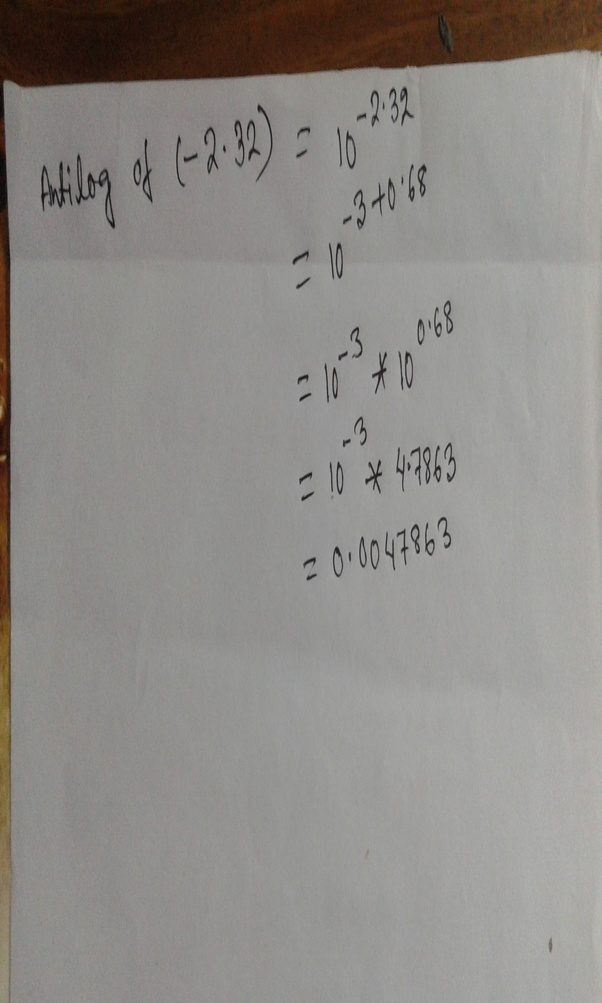 Antilog of (-2.32) = 10^-2.32
= 10^-3+0.68
= 10^-3 * 10^0.68
= 10^-3 * 4.7863
= 0.0047863